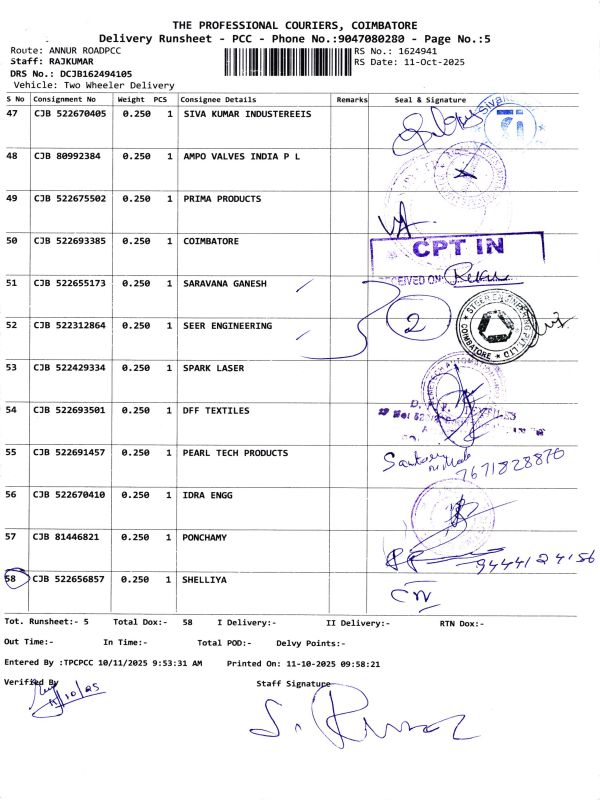 THE PROFESSIONAL COURIERS, COIMBATORE
Delivery Runsheet - PCC - Phone No.:9047080280 - Page No.:5
Route: ANNUR ROADPCC RS No.: 1624941
Staff: RAJKUMAR RS Date: 11-Oct-2025
DRS No.: DCJB162494105
Vehicle: Two Wheeler Delivery
S No Consignment No Weight PCS Consignee Details Remarks Seal & Signature
47 CJB 522670405 0.250 1 SIVA KUMAR INDUSTEREEIS
48 CJB 80992384 0.250 1 AMPO VALVES INDIA P L
49 CJB 522675502 0.250 1 PRIMA PRODUCTS
50 CJB 522693385 0.250 1 COIMBATORE
CPT IN
51 CJB 522655173 0.250 1 SARAVANA GANESH
RECEIVED ON
52 CJB 522312864 0.250 1 SEER ENGINEERING 2
STEER ENGINEERING PVT LTD * COIMBATORE *
53 CJB 522429334 0.250 1 SPARK LASER
54 CJB 522693501 0.250 1 DFF TEXTILES
55 CJB 522691457 0.250 1 PEARL TECH PRODUCTS
7671828870
56 CJB 522670410 0.250 1 IDRA ENGG
57 CJB 81446821 0.250 1 PONCHAMY
9444124156
58 CJB 522656857 0.250 1 SHELLIYA
Tot. Runsheet:- 5 Total Dox:- 58 I Delivery:- II Delivery:- RTN Dox:-
Out Time:- In Time:- Total POD:- Delvy Points:-
Entered By :TPCPCC 10/11/2025 9:53:31 AM Printed On: 11-10-2025 09:58:21
Verified By Staff Signature